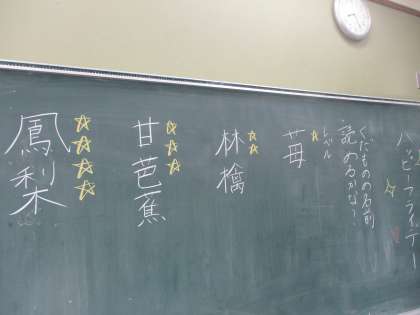 ハッピーフライデー
くだものの名前
読めるかな?
レベル
苺 ☆
林檎 ☆☆
甘芭蕉 ☆☆☆
鳳梨 ☆☆☆☆